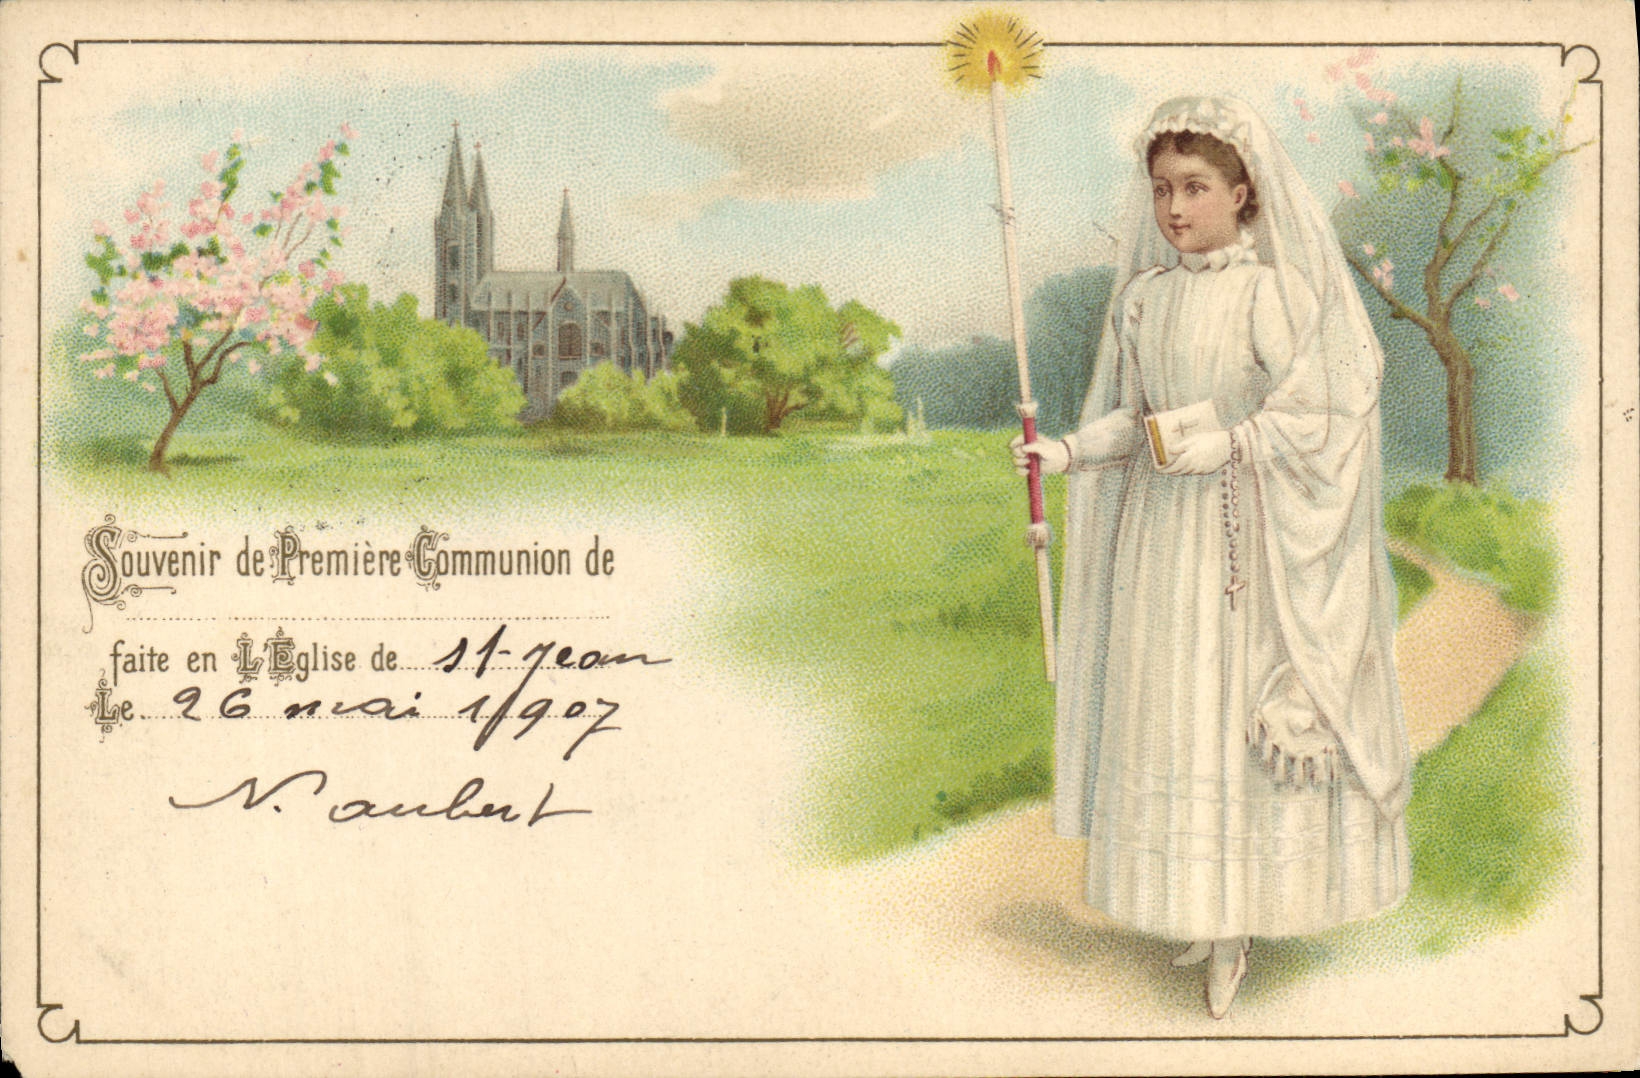 Souvenir de Première Communion de
faite en L'Eglise de st-Jean
Le 26 mai 1907
N. aubert